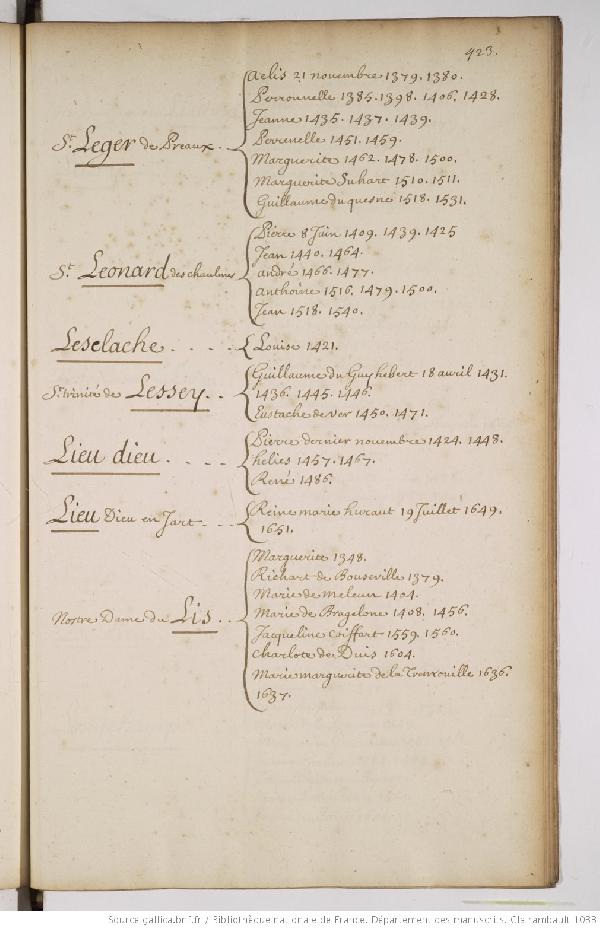 423.
Aelis 21 novembre 1379. 1380.
Perronnelle 1385. 1398. 1406. 1428.
Jeanne 1435. 1437. 1439.
Perrenelle 1451. 1459.
St Leger de Preaux.
Marguerite 1462. 1478. 1500.
Marguerite Suhart 1510. 1511.
Guillaume du quesne 1518. 1531.
Pierre 8 Juin 1409. 1439. 1425
Jean 1440. 1464.
St Leonard des chaulmes
andré 1466. 1477.
anthoine 1516. 1479. 1500.
Jean 1518. 1540.
Lesclache . . . . Louise 1421.
Guillaume du Guyhebert 18 avril 1431.
Ste trinité de Lessey . . 1436. 1445. 1446.
Eustache de ver 1450. 1471.
Pierre dernier novembre 1424. 1448.
Lieu dieu . . . . helies 1457. 1467.
René 1486.
Lieu Dieu en Jart Reine marie huraut 19 Juillet 1649.
1651.
Marguerite 1348.
Richart de Bouseville 1379.
Marie de meleun 1404.
Nostre Dame du Lis . . Marie de Bragelone 1408. 1456.
Jacqueline coiffart 1559. 1560.
Charlote de Puis 1604.
Marie marguerite de la Tremouille 1636.
1637.
Source gallica.bnf.fr / Bibliothèque nationale de France. Département des manuscrits. Clairambault 1033